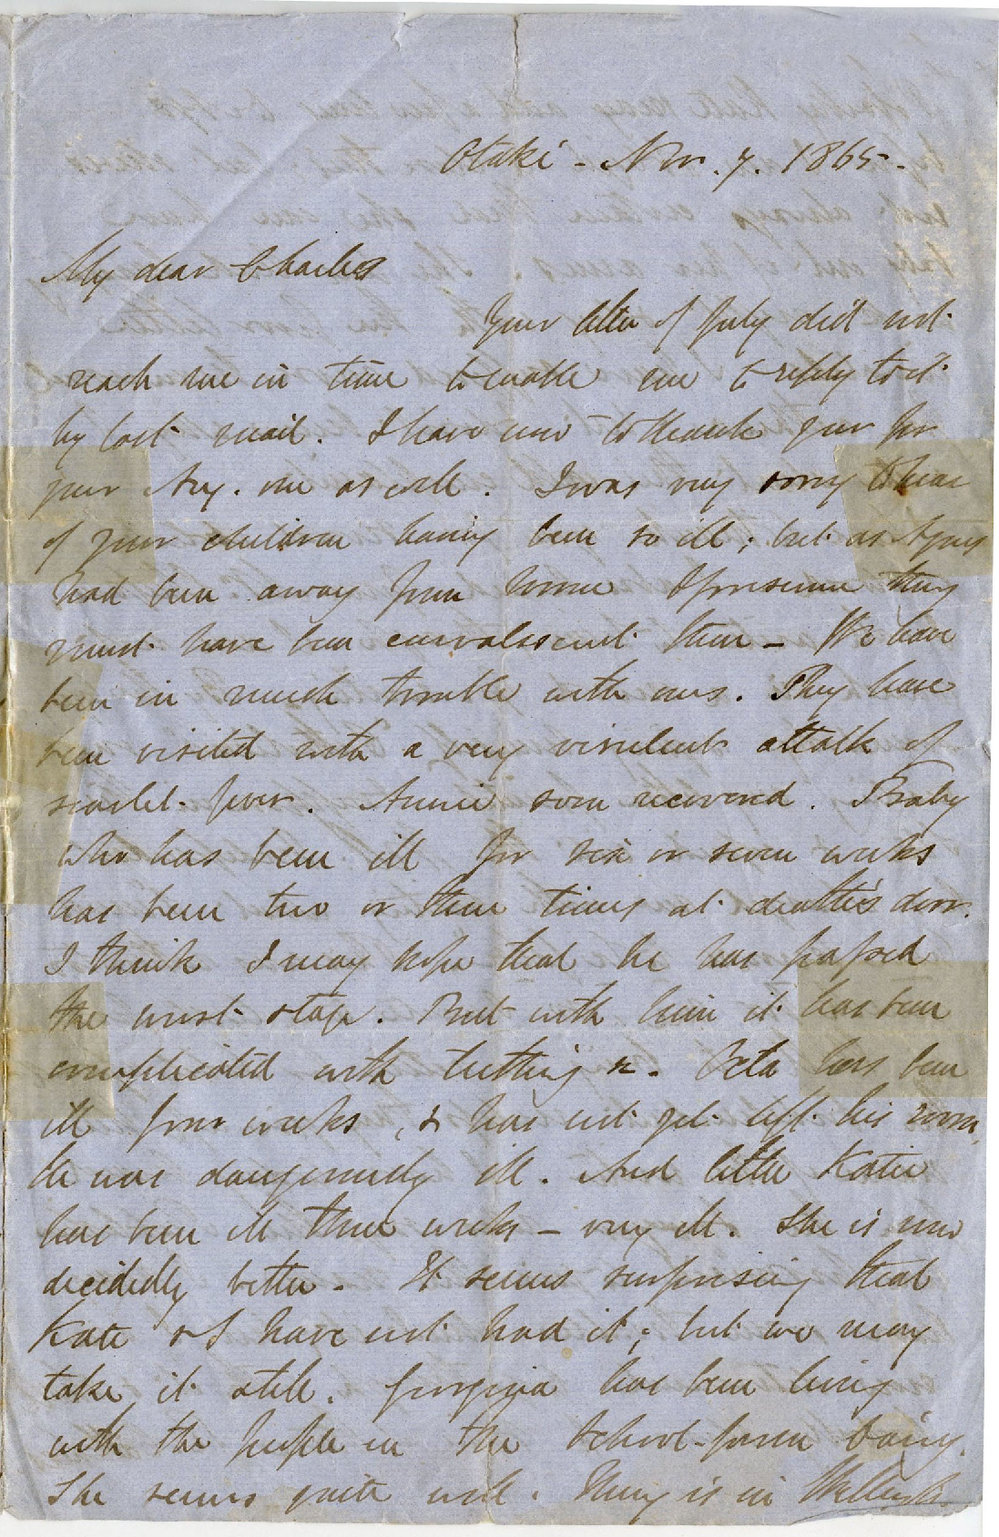 Otaki - Nov. 7. 1865.
My dear Charles
Your letter of July did not
reach me in time to enable me to reply to it
by last mail. I have now to thank you for
your Aug. one as well. I was very sorry to hear
of your children having been so ill; but as Agnes
had been away from home I presume they
must have been convalescent then - We have
been in much trouble with ours. They have
been visited with a very virulent attack of
scarlet-fever. Annie soon recovered. Baby
who has been ill for six or seven weeks
has been two or three times at death's door.
I think I may hope that he has passed
the worst stage. But with him it has been
complicated with teething &c. Octa has been
ill four weeks, & has not yet left his room,
he was dangerously ill. And little Katie
has been ill three weeks - very ill. She is now
decidedly better. It seems surprising that
Kate & I have not had it; but we may
take it still. Georgina has been living
with the people in the School-farm Dairy.
She seems quite well. Henry is in Wellington